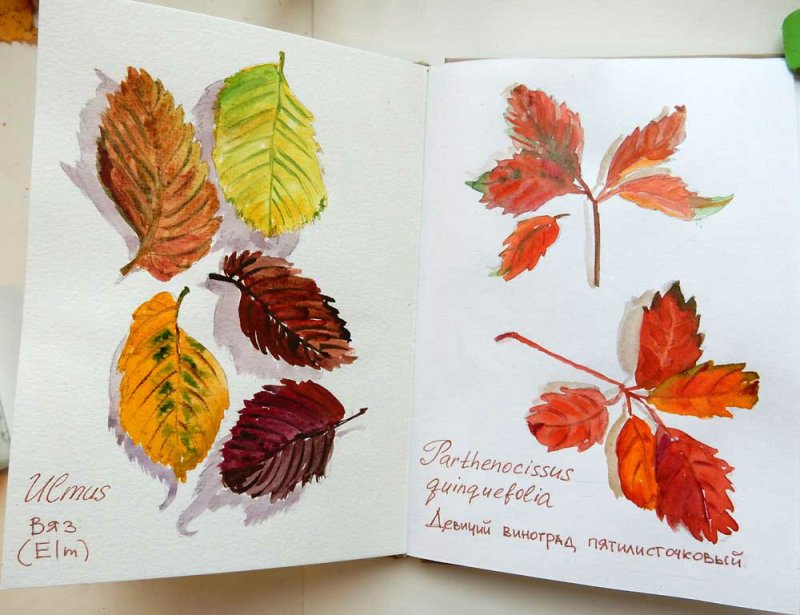 Ulmus
Вяз
(Elm)
Parthenocissus
quinquefolia
Девичий виноград пятилисточковый